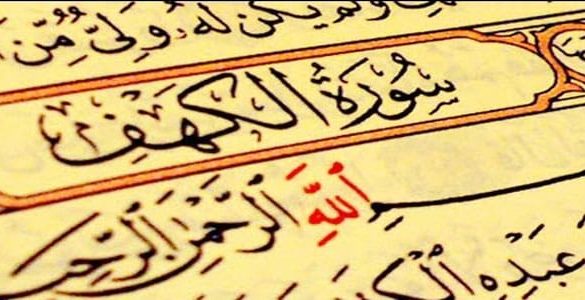 وَلَمْ يَكُن لَّهُۥ وَلِىٌّ مِّنَ
سُورَةُ الكَهْفِ
بِسْمِ ٱللَّهِ ٱلرَّحْمَٰنِ ٱلرَّحِيمِ
عَبْدِهِ ٱلْكِتَٰبَ